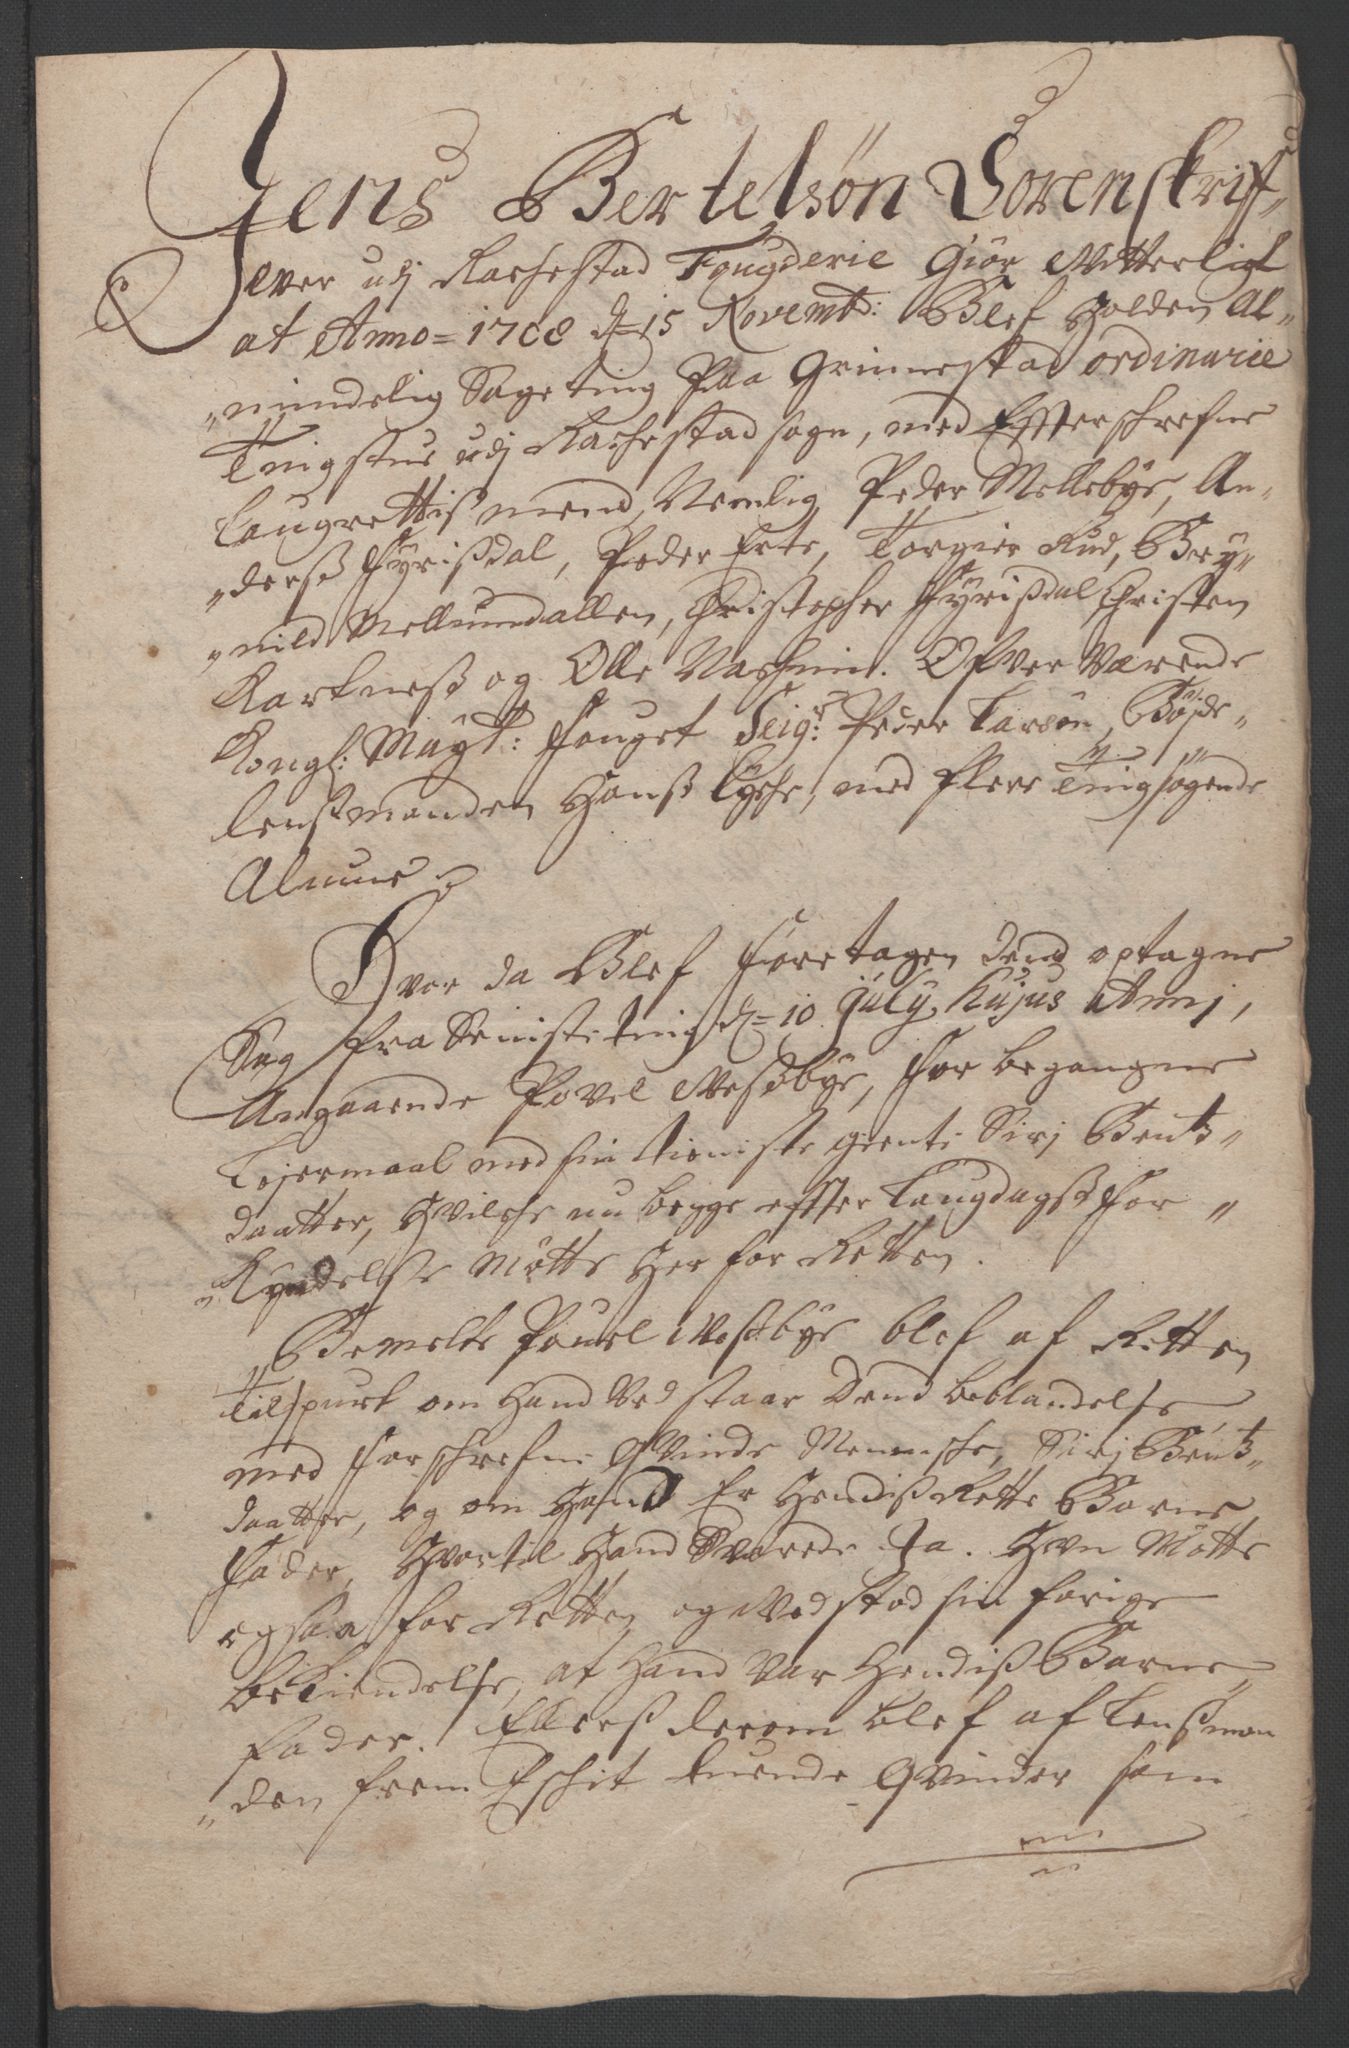 Jens Bertelsøn Sorenskriff-
ver udj Rachestad Fougderie Giør Vitterligt
at Anno = 1708 d= 15 Novembr: Blef Holden Al-
mindelig Sageting Paa Grimestad ordinarie
Tingstue udj Rachestad sogn, med Effterschrefne
Laugrettis mend, Nemlig Peder Mellebye, An-
derss Fyrissdal, Peder Erte, Torgier Rud, Bery-
nild Mellumdallen, Christopher Fyrissdal Christen
Kartness og Olle Naschim. Ofver Værende
Kongl: Mayt: Fouget Seigr: Peder Larsøn, Bøjde-
lensmanden Hanss Lysche, med flere Tingsøgende
Almue.
Hvor da Blef Foretagen dend optagne
Sag fra Seniste ting d= 10 July Hujus Annj,
Angaaende Povel Westbye, for begangne
Lejermaal med sin tieniste Gente Sirj Bentz-
daatter, Hvilche nu begge effter Laugdagss For-
Kyndelsse Møtte Her for Retten.
Bemelte Pouel Westbye blef af Retten
tilspurt om Hand Ved staar Dend beblandelse
med forschrefne Qvinde Mennische, Sirj Bentz-
daatter, og om Hand Er Hendiss Rette Barne
Fader, Hvortil Hand Svarede Ja. Hun Møtte
ogsaa for Retten og Vedstod sin forige
bekiendelse, at Hand Var Hendiss Barne-
fader. Ellerss derom blef af Lenssman
den frem Eschit tuende Qvinder som